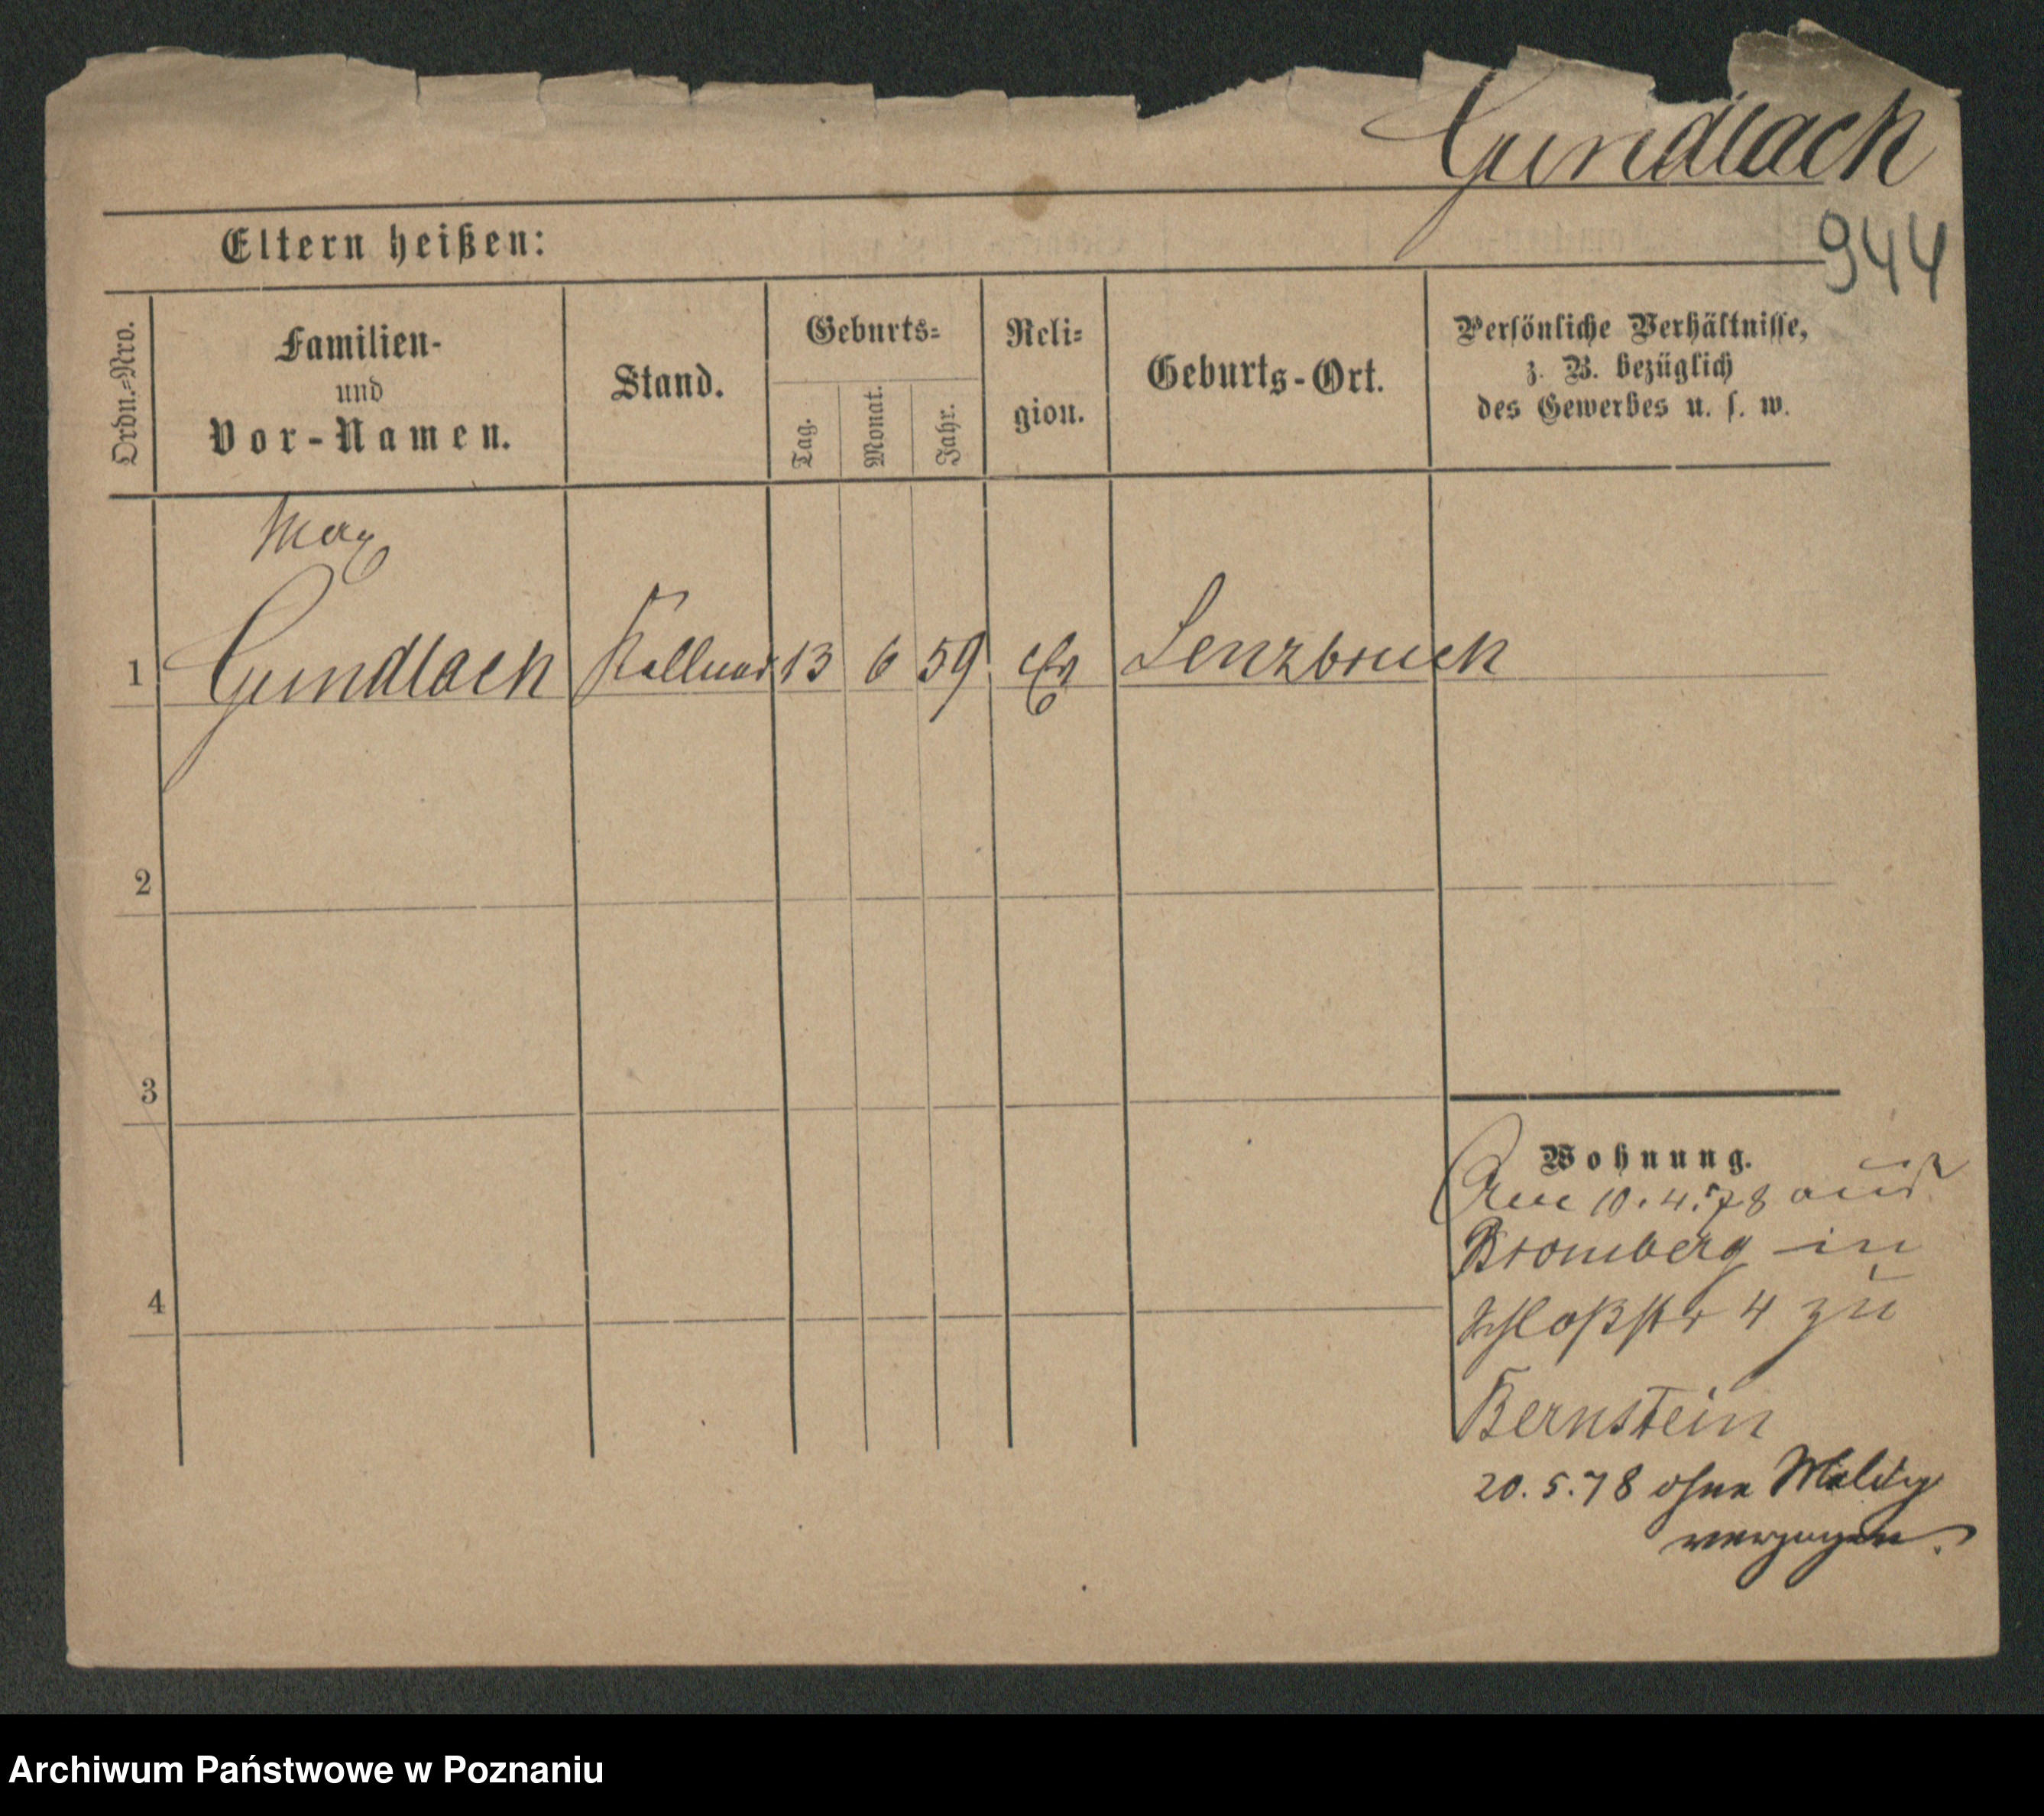 Gundlach
944
Eltern heißen:
Ordn.=Nro.
Familien-
und
Vor-Namen.
Stand.
Geburts=
Tag.
Monat.
Jahr.
Reli=
gion.
Geburts-Ort.
Persönliche Verhältnisse,
z. B. bezüglich
des Gewerbes u. s. w.
Max
1 Gundlach Kellner 13 6 59 Ev Lenzbruch
2
3
4
Wohnung.
Am 10.4.78 aus
Bromberg in
Schloßstr 4 zu
Bernstein
20.5.78 ohne Meldg
verzogen.
Archiwum Państwowe w Poznaniu